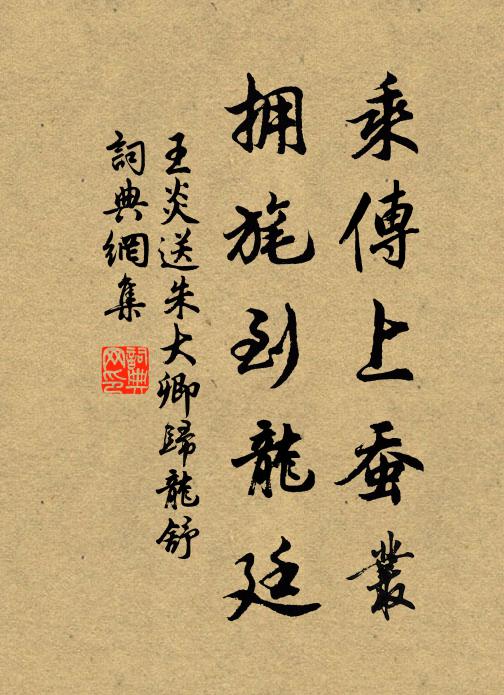 乘傳上蚕叢
拥旄到龍廷
王炎送朱大卿歸龍舒
詞典網集
詞典网印